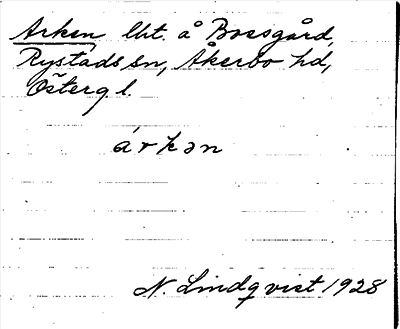 Arken lht. å Bossgård,
Rystads sn, Åkerbo hd,
Österg. l.
árkən
N. Lindqvist 1928